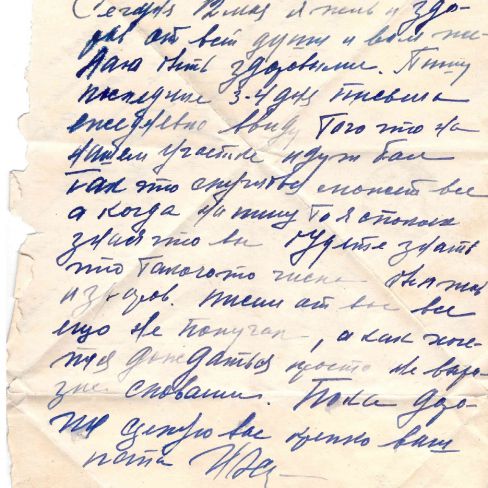 Сегодня 12 мая я жив и здо-
ров от всей души и вам же-
лаю быть здоровыми. Пишу
последние 3-4 дня письма
ежедневно ввиду того что на
нашем участке идут бои
так что случиться может все
а когда напишу то я спокоен
зная что вы будете знать
что такого то числа был жив
и здоров. писем от вас все
ещо не получал, а как хоче-
тся дождаться просто не выра-
зиш словами. Пока
целую вас крепко ваш
папа